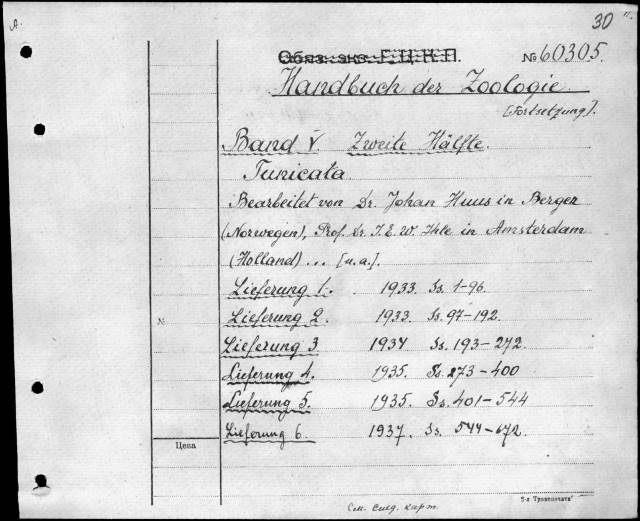 A.
30
Обяз. экз. Г.Ц.К.П.
№ 60305.
Handbuch der Zoologie.
[Fortsetzung].
Band V Zweite Hälfte.
Tunicata
Bearbeitet von Dr. Johan Huus in Berger
(Norwegen), Prof. Dr. J. E. W. Ihle in Amsterdam
(Holland) ... [u.a.].
Lieferung 1. 1933. Ss. 1-96.
№ Lieferung 2. 1933. Ss. 97-192.
Lieferung 3 1934 Ss. 193-272.
Lieferung 4. 1935. Ss. 273-400
Lieferung 5. 1935. Ss. 401-544
Lieferung 6. 1937. Ss. 544-672.
Цена
5-я Транпечать
См. след. карт.